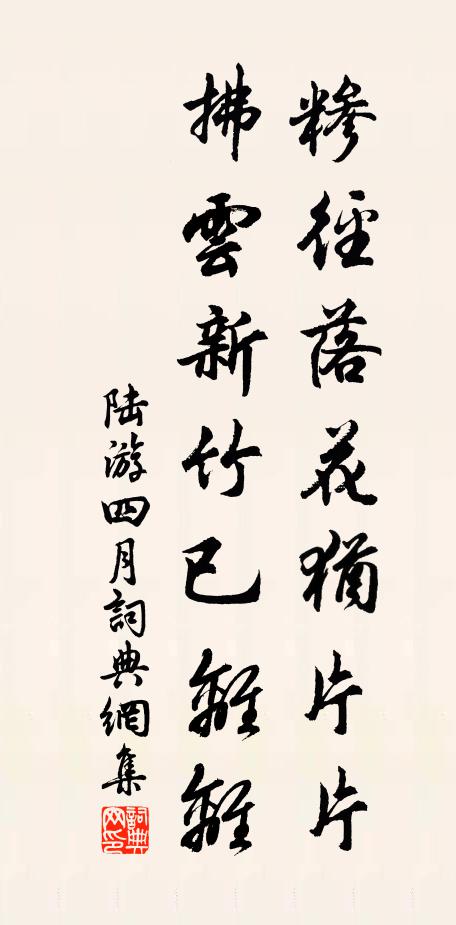 糝徑落花猶片片
拂雲新竹已離離
陸游四月詞典網集
詞典網印